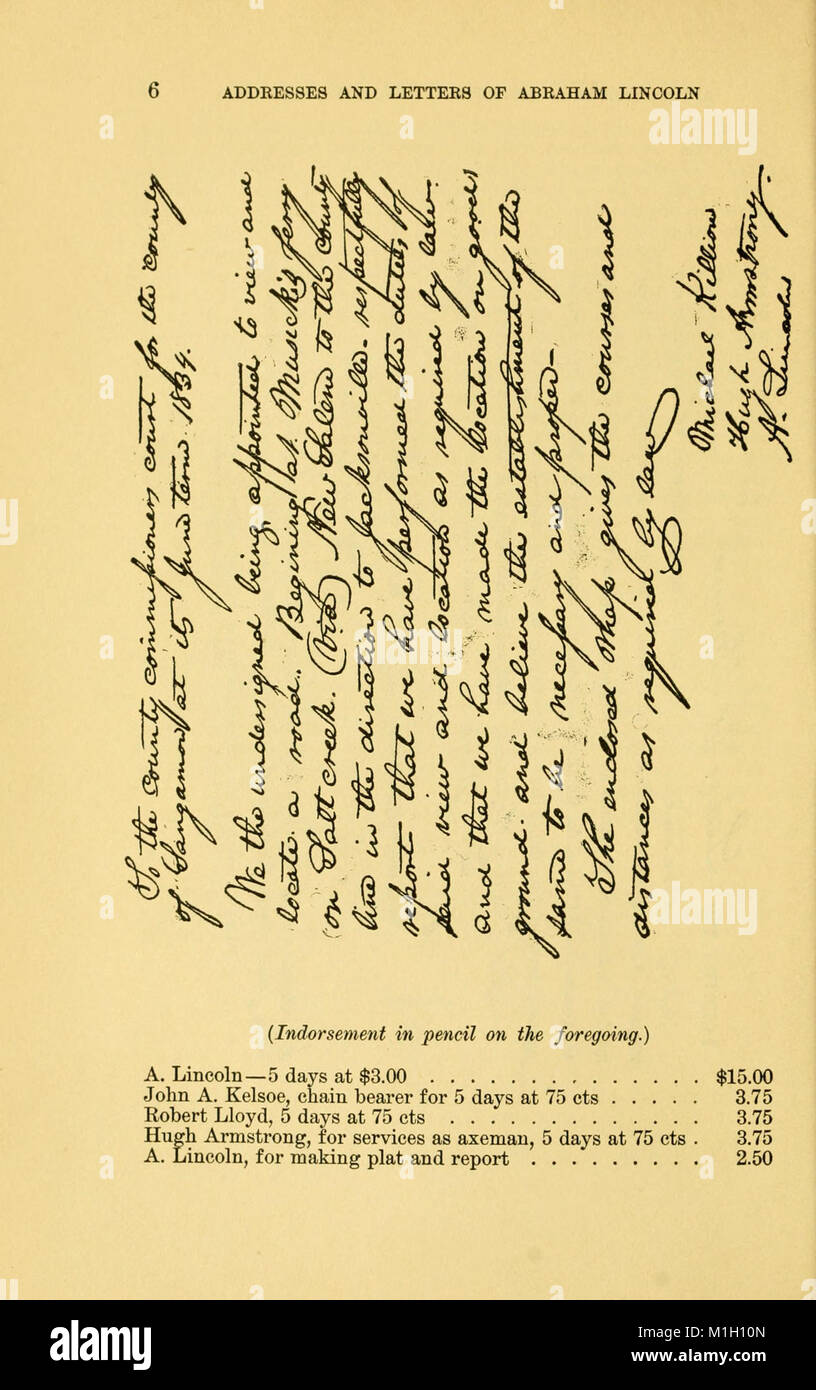 6 ADDRESSES AND LETTERS OF ABRAHAM LINCOLN
To the County commissioners court for the county
of Sangamon at its June term 1834.
We the undersigned being appointed to view and
locate a road. Begining at Musick's ferry
on Salt creek. (Via) New Salem to the County
line in the direction to Jacksonville - respectfully
report that we have performed the duties of
said view and location as required by law
and that we have made the location on good
ground - and believe the establishment of the
same to be necessary and proper -
The enclosed map gives the courses and
distances as required by law
Michael Killion
Hugh Armstrong
A. Lincoln
(Indorsement in pencil on the foregoing.)
A. Lincoln—5 days at $3.00 . . . . . . . . . . . . . . $15.00
John A. Kelsoe, chain bearer for 5 days at 75 cts . . . . . 3.75
Robert Lloyd, 5 days at 75 cts . . . . . . . . . . . . . 3.75
Hugh Armstrong, for services as axeman, 5 days at 75 cts . 3.75
A. Lincoln, for making plat and report . . . . . . . . . 2.50
alamy
Image ID: M1H10N
www.alamy.com